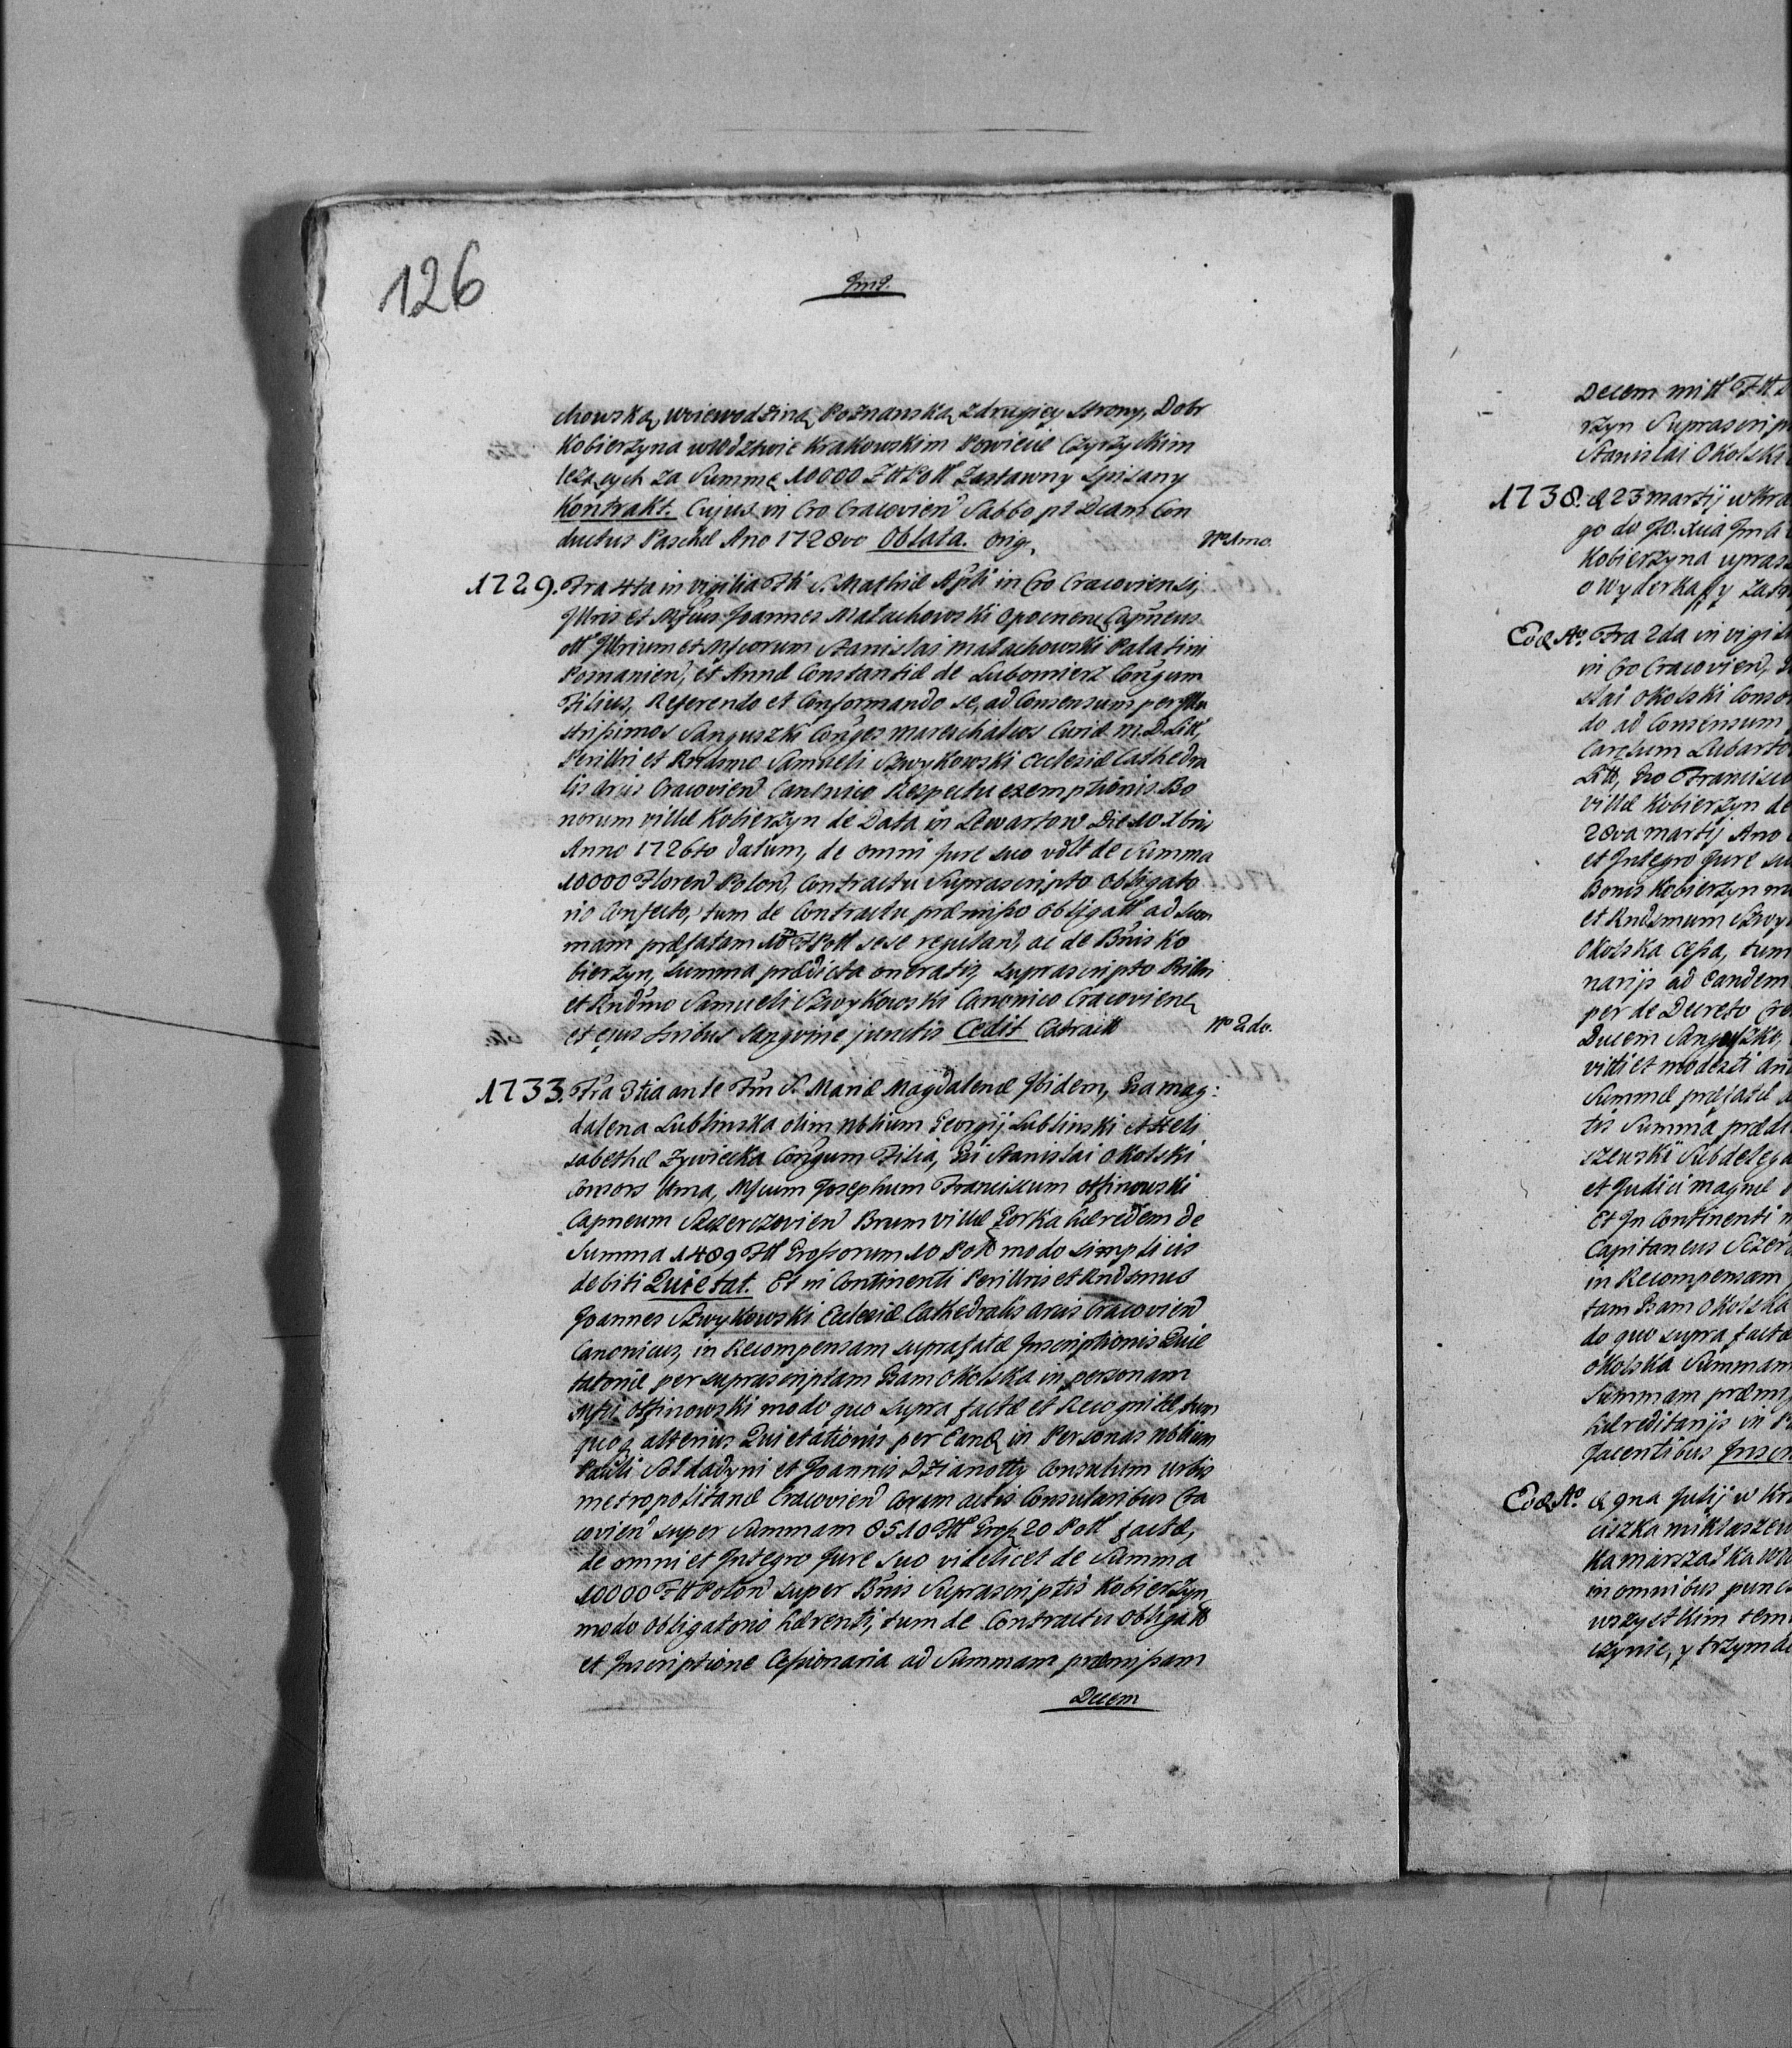 126
chowską woiewodziną Poznanską z drugiey strony, Dobr
Kobierzyna w Wodztwie Krakowskim Powiecie Czyrzyckim
leżących za Summę 10000 Ztt Pott Zastawny Spisany
Kontrakt. Cujus in Cro Cracovien Sabbo pt Dcam Con
ductus Paschæ Ano 1728vo Oblata. Orig. No 1mo.
1729. Fra 4ta in vigilia Fti S. Mathiæ Apli in Cro Cracoviensi,
Jllris et Mfcus Joannes Małachowski Opocnen Capneus
Jllrium et Mfcorum Stanislai Małachowski Palatini
Posnanien, et Annæ Constantiæ de Lubomierz Congum
Filius, Referendo et Conformando se, ad Consensum per Jllu
strissimos Sanguszki Conges Mareschalcos Curiæ M. D. Litt,
Perillri et Rndsmo Samueli Szwykowski Ecclesiæ Cathedra
lis Arcis Cracovien Canonico Respectu exemptionis Bo
norum villæ Kobierzyn de Data in Lewartow Die 10 Xbris
Anno 1726to datum, de omni Jure suo vdlt de Summa
10000 Floren Polon, Contractu Suprascripto Obligato
rio Confecto, tum de Contractu præmisso Obligatt ad Sum
mam præfatam 10m F Pott sese regulan, ac de Bnis Ko
bierzyn, Summa prædicta oneratis, suprascripto Prillri
et Rndmo Samueli Szwykowski Canonico Cracovien
et ejus fribus Sangvine junctis Cedit No 2do.
1733. Fra 3tia ante Ftm S. Mariæ Magdalenæ Jbidem, Gsa Mag:
dalena Lublinska olim Nblium Georgij Lublinski et Heli
sabethæ Zywiecka Congum Filia, Gsi Stanislai Okolski
Consors Uma, Mfcum Josephum Franciscum Otfinowski
Capneum Szczerczovien Bnrum villæ Gorka hæredem de
Summa 1489 Ftt Grossorum 10 Pott modo simplicis
debiti Quietat. Et in Continenti Perillris et Rndsmus
Joannes Szwykowski Ecclesiæ Cathedralis Arcis Cracovien
Canonicus, in Recompensam suprafatæ Jnscriptionis Quie
tatoriæ per suprascriptam Gsam Okolska in personam
Mfci Otfinowski modo quo supra factæ et Recognitæ, tum
quoq alterius Quietationis per Eand in Personas Nblium
Pauli Sołdadyni et Joannis Dzianotty Consulum Urbis
Metropolitanæ Cracovien Coram Actis Consularibus Cra
covien super Summam 8510 Ftt Gross 20 Pott factæ,
de omni et Jntegro Jure suo videlicet de Summa
10000 Ftt Polon super Bnis Suprascriptis Kobierzyn
modo Obligatorio hærenti, tum de Contractu Obligatt
et Jnscriptione Cessionaria ad Summam præmissam
Decem
Decem mill Ftt
rzyn Suprascrip
Stanislai Okolski
1738. d 23 Martij w Kra
go do
Kobierzyna upras
o Wyderkassy
Eod Ao. Fra 2da in vigili
in Cro Cracovien,
slai Okolski Consor
do ad Consensum
Lubarto
Litt, Gso Francisco
villæ Kobierzyn de
28va Martij Ano
et Jntegro Jure su
Bonis Kobierzyn
et Rndsmum Szwy
Okolska Cessa, tum
narijs ad Eandem
per de Decreto
Ducem Sanguszko,
et modesti
Summæ præfatæ
tis Summa prædi
szewski Subdelega
et Judici
Et Jn Continenti
Capitaneus Szczer
in Recompensam
tam Gsam Okolska
do quo supra factæ
Okolska Summam
Summam præmis
hæreditarijs in
Jacentibus Jnscri
Eod Ao. d 9na Julij w Kra
ciszka Mikłaszew
in omnibus punct
wszystkim tem
czynie, y trzyma